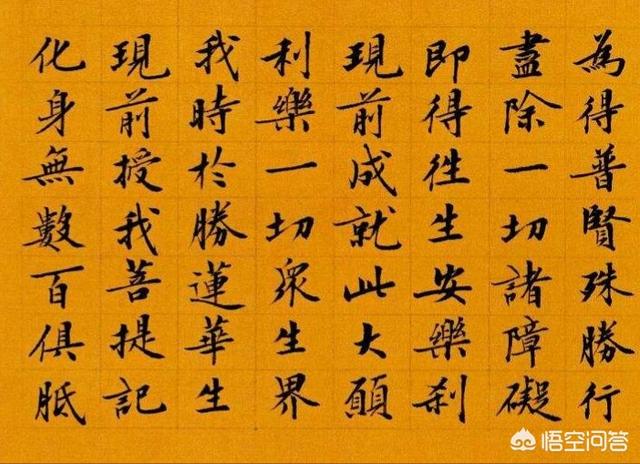 為得普賢殊勝行
盡除一切諸障礙
即得往生安樂刹
現前成就此大願
利樂一切眾生界
我時於勝蓮華生
現前授我菩提記
化身無數百俱胝
悟空问答